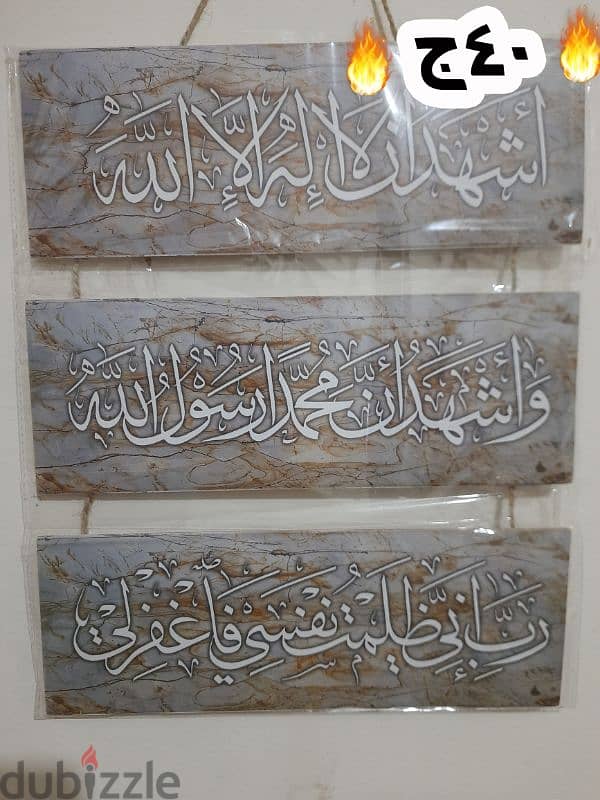 ٤٠ج
أشهد ان لا إله إلا الله
وأشهد أن محمدا رسول الله
رب إني ظلمت نفسي فاغفر لي
dubizzle